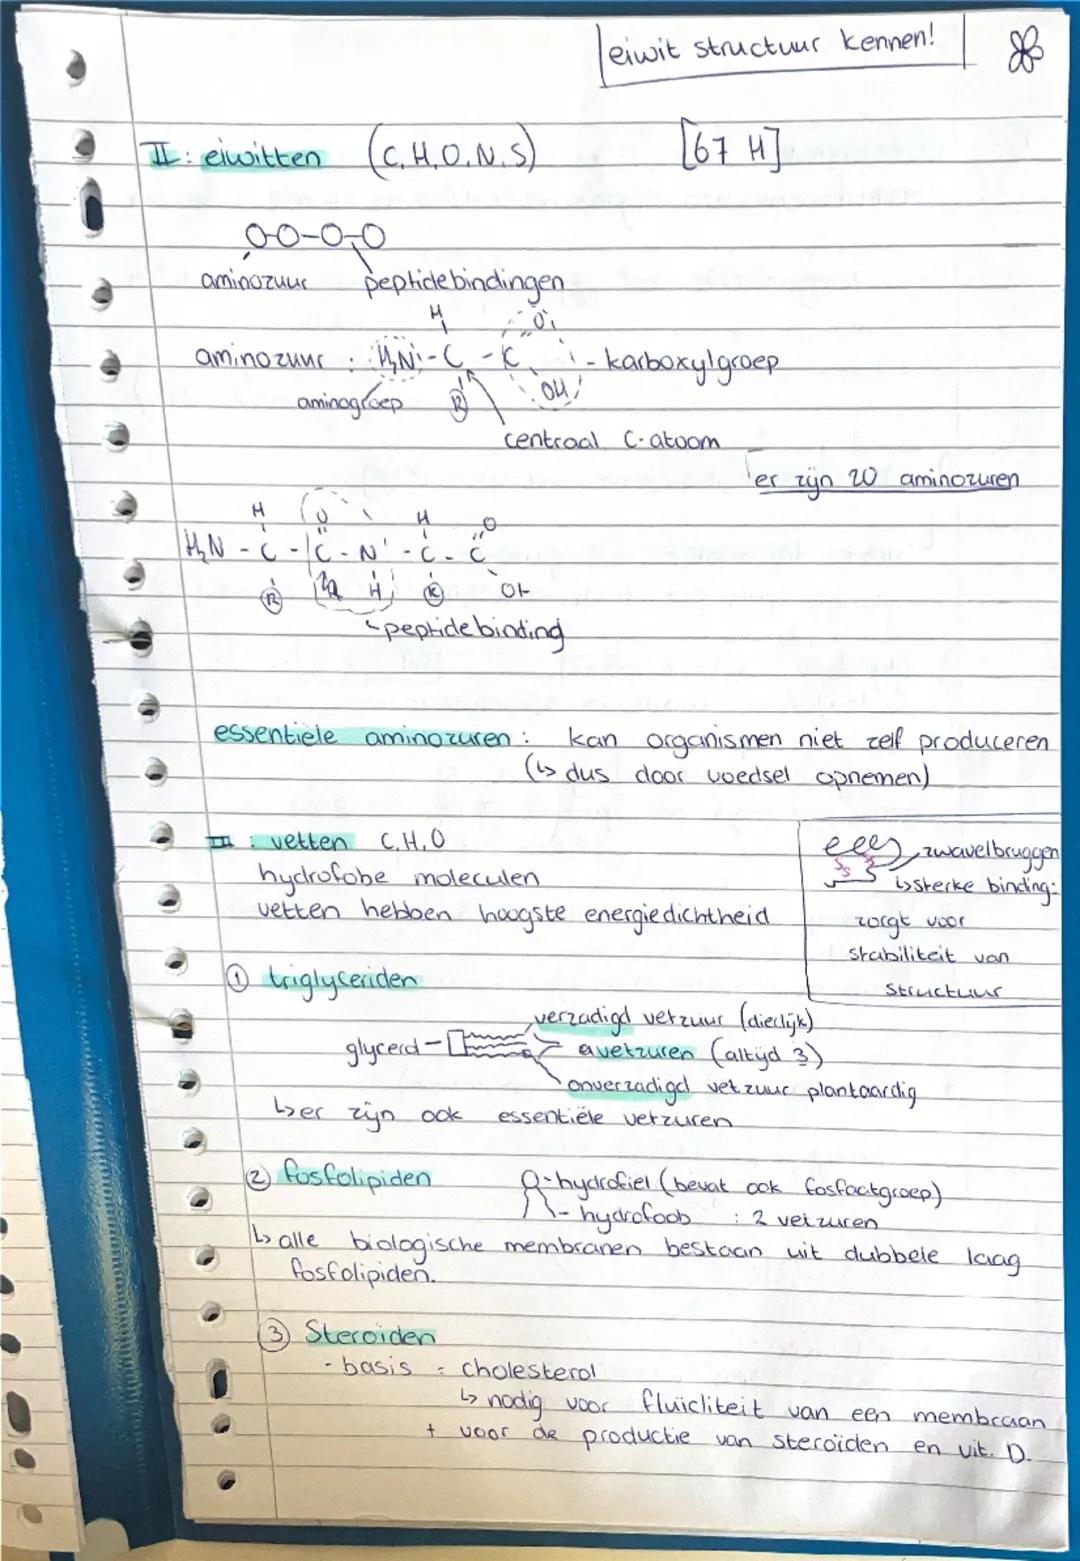 eiwit structuur kennen!
II: eiwitten (C.H.O.N.S) [67 H]
O-O-O-O
aminozuur peptidebindingen
H O
aminozuur : H₂N - C - C - karboxylgroep
aminogroep R OH
centraal C-atoom
er zijn 20 aminozuren
H O H O
H₂N - C - C - N - C - C
R H R OH
↳peptidebinding
essentiële aminozuren : kan organismen niet zelf produceren
(↳ dus door voedsel opnemen)
III : vetten C.H.O
hydrofobe moleculen
vetten hebben hoogste energiedichtheid
S S zwavelbruggen
↳sterke binding:
zorgt voor
stabiliteit van
structuur
① triglyceriden
verzadigd vetzuur (dierlijk)
glycerol - vetzuren (altijd 3)
onverzadigd vetzuur plantaardig
↳er zijn ook essentiële vetzuren
② fosfolipiden
-hydrofiel (bevat ook fosfaatgroep)
- hydrofoob : 2 vetzuren
↳ alle biologische membranen bestaan uit dubbele laag
fosfolipiden.
③ Steroïden
- basis = cholesterol
↳ nodig voor fluïditeit van een membraan
+ voor de productie van steroïden en vit. D.